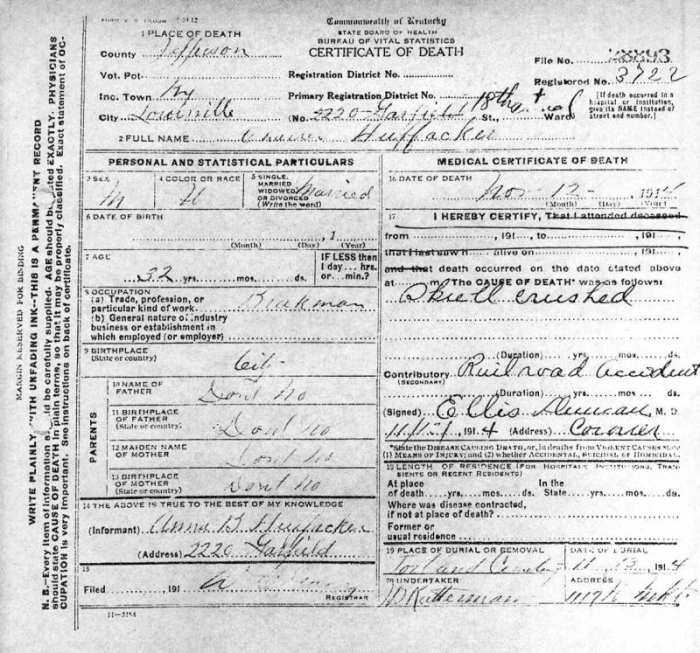 Commonwealth of Kentucky
STATE BOARD OF HEALTH
BUREAU OF VITAL STATISTICS
CERTIFICATE OF DEATH
1 PLACE OF DEATH
County Jefferson
Vot. Pct.
Inc. Town Ky
City Louisville
Registration District No.
Primary Registration District No.
(No. 2220 Garfield 18th St., Ward)
File No.
Registered No. 3722
[If death occurred in a hospital or institution, give its NAME instead of street and number.]
2 FULL NAME Huffacker
PERSONAL AND STATISTICAL PARTICULARS
3 SEX M
4 COLOR OR RACE
5 SINGLE, MARRIED WIDOWED OR DIVORCED (Write the word) Married
6 DATE OF BIRTH
, 1
(Month) (Day) (Year)
7 AGE
32 yrs. mos. ds.
IF LESS than 1 day... hrs. or... min.?
8 OCCUPATION
(a) Trade, profession, or particular kind of work Brakman
(b) General nature of industry business or establishment in which employed (or employer)
9 BIRTHPLACE
(State or country) City
PARENTS
10 NAME OF FATHER Dont no
11 BIRTHPLACE OF FATHER (State or country) Dont no
12 MAIDEN NAME OF MOTHER Dont no
13 BIRTHPLACE OF MOTHER (State or country) Dont no
14 THE ABOVE IS TRUE TO THE BEST OF MY KNOWLEDGE
(Informant) Anna B. Huffacker
(Address) 2220 Garfield
15
Filed , 191
REGISTRAR
11-3184
MEDICAL CERTIFICATE OF DEATH
16 DATE OF DEATH
Nov 12 - , 1914
(Month) (Day) (Year)
17 I HEREBY CERTIFY, That I attended deceased
from , 191 , to , 191
that I last saw h alive on , 191
and that death occurred on the date stated above
at m. The CAUSE OF DEATH* was as follows:
Skull crushed
(Duration) yrs. mos. ds.
Contributory Railroad accident
(SECONDARY)
(Duration) yrs. mos. ds.
(Signed) Ellis Duncan, M. D.
, 1914 (Address) Coroner
*State the DISEASE CAUSING DEATH, or, in deaths from VIOLENT CAUSES state (1) MEANS OF INJURY; and (2) whether ACCIDENTAL, SUICIDAL or HOMICIDAL.
18 LENGTH OF RESIDENCE (FOR HOSPITALS, INSTITUTIONS, TRANSIENTS OR RECENT RESIDENTS)
At place of death yrs. mos. ds. In the State yrs. mos. ds.
Where was disease contracted, if not at place of death?
Former or usual residence
19 PLACE OF BURIAL OR REMOVAL
DATE OF BURIAL
11 13, 1914
20 UNDERTAKER
Ratterman
ADDRESS
MARGIN RESERVED FOR BINDING
WRITE PLAINLY, WITH UNFADING INK--THIS IS A PERMANENT RECORD
N. B.--Every item of information should be carefully supplied. AGE should be stated EXACTLY. PHYSICIANS
should state CAUSE OF DEATH in plain terms, so that it may be properly classified. Exact statement of OC-
CUPATION is very important. See instructions on back of certificate.